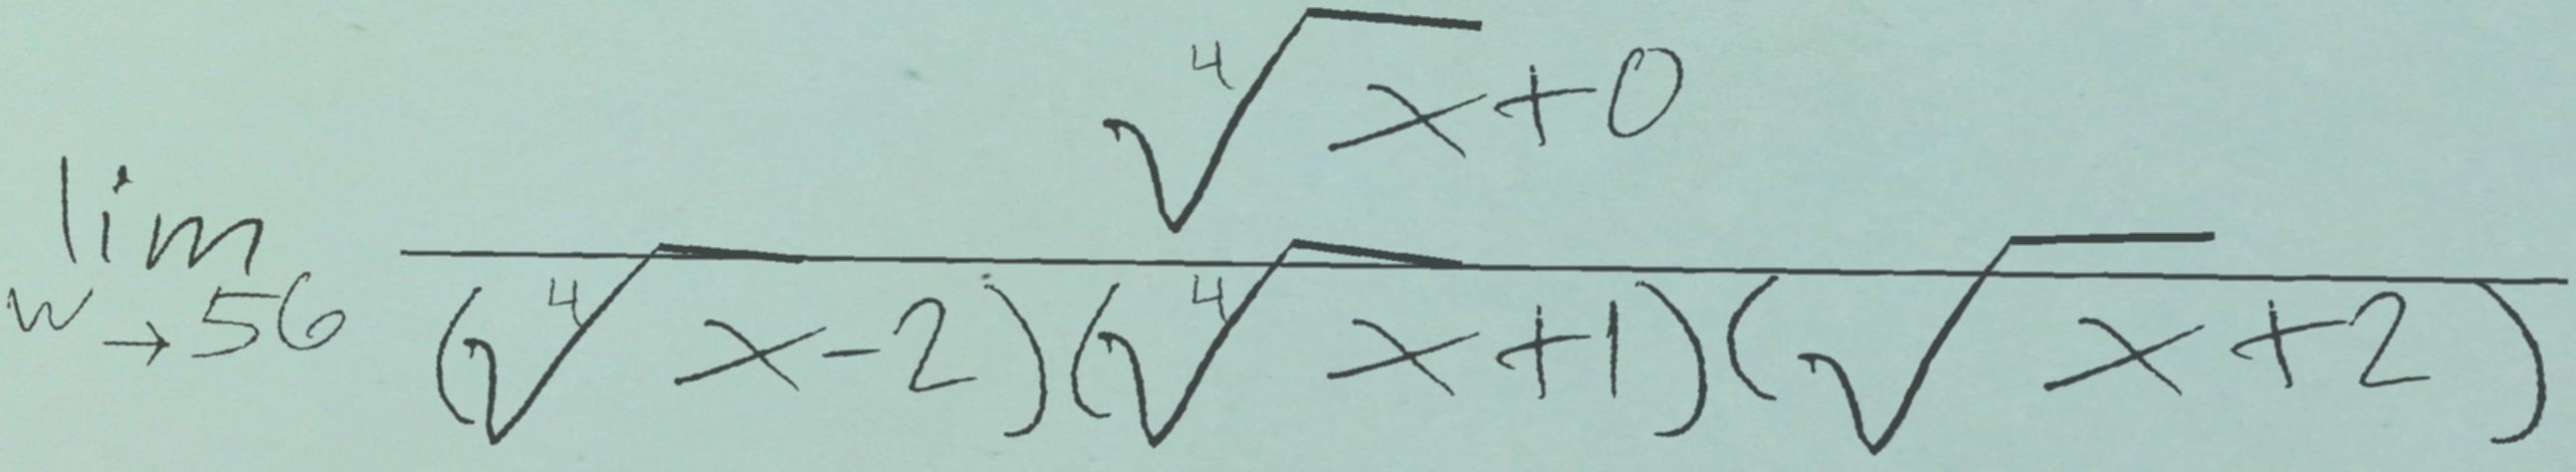 \lim_{w \to 56} \frac{\sqrt[4]{x}+0}{(\sqrt[4]{x}-2)(\sqrt[4]{x}+1)(\sqrt{x}+2)}